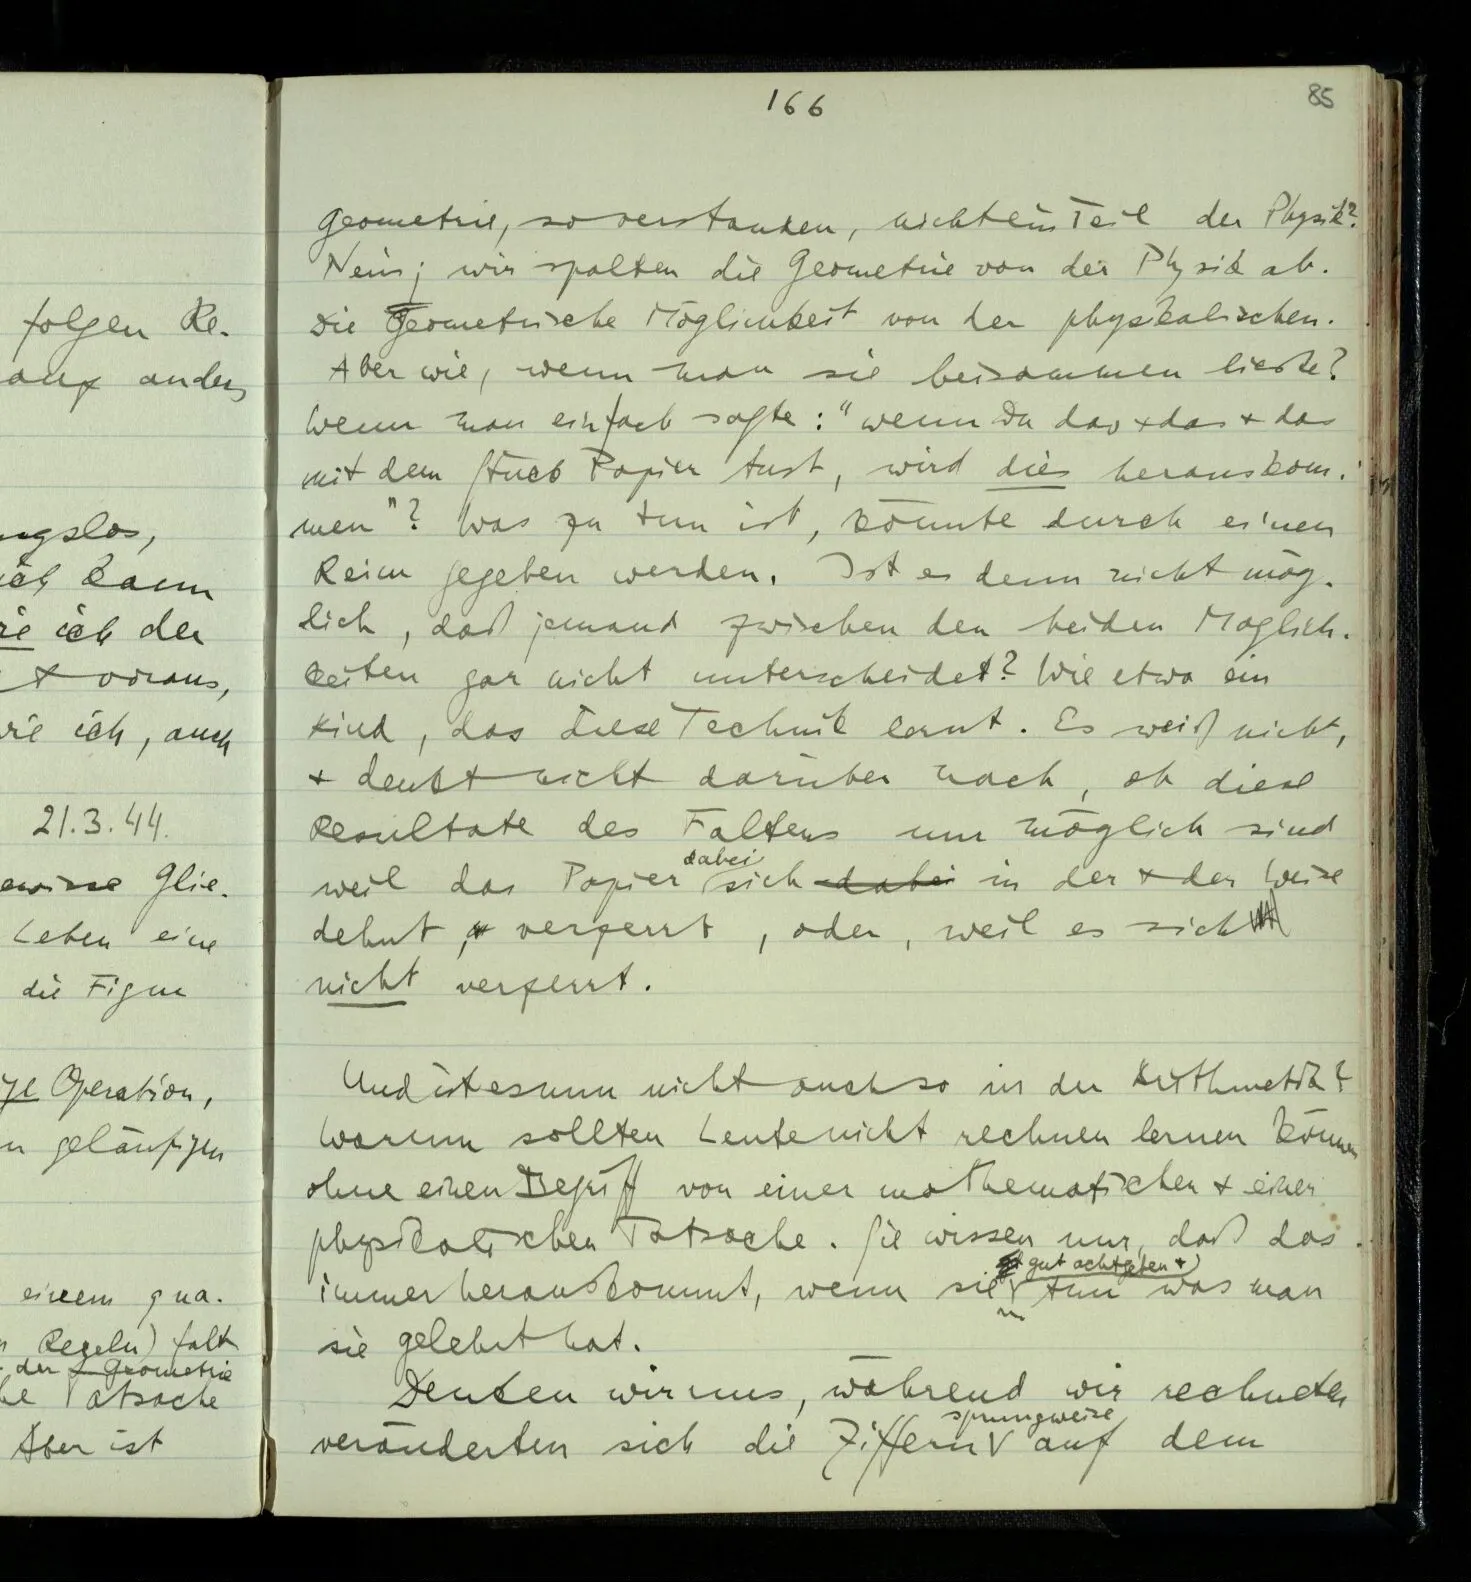 folgen Re-
auf anders
ungslos,
ich kann
wie ich der
+ voraus,
wie ich, auch
21.3.44.
gewisse Glie-
Leben eine
die Figur
Operation,
geläufigen
einem qua-
Regeln) falt
der Geometrie
Tatsache
Aber ist
166
85
Geometrie, so verstanden, nicht ein Teil der Physik?
Nein; wir spalten die Geometrie von der Physik ab.
Die Geometrische Möglichkeit von der physikalischen.
Aber wie, wenn man sie beisammen ließe?
Wenn man einfach sagte: "wenn Du das + das + das
mit dem Stück Papier tust, wird dies herauskom-
men"? Was zu tun ist, könnte durch einen
Reim gegeben werden. Ist es denn nicht mög-
lich, daß jemand zwischen den beiden Möglich-
keiten gar nicht unterscheidet? Wie etwa ein
Kind, das diese Technik lernt. Es weiß nicht,
+ denkt nicht darüber nach, ob diese
Resultate des Faltens nur möglich sind
weil das Papier dabei sich dabei in der + der Weise
dehnt, verzerrt, oder, weil es sich
nicht verzerrt.
Und ist es nun nicht auch so in der Arithmetik?
Warum sollten Leute nicht rechnen lernen können
ohne einen Begriff von einer mathematischen + einer
physikalischen Tatsache. Sie wissen nur, daß das
immer herauskommt, wenn sie gut achtgeben + tun was man
sie gelehrt hat.
Denken wir uns, während wir rechneten
veränderten sich die Ziffern sprungweise auf dem